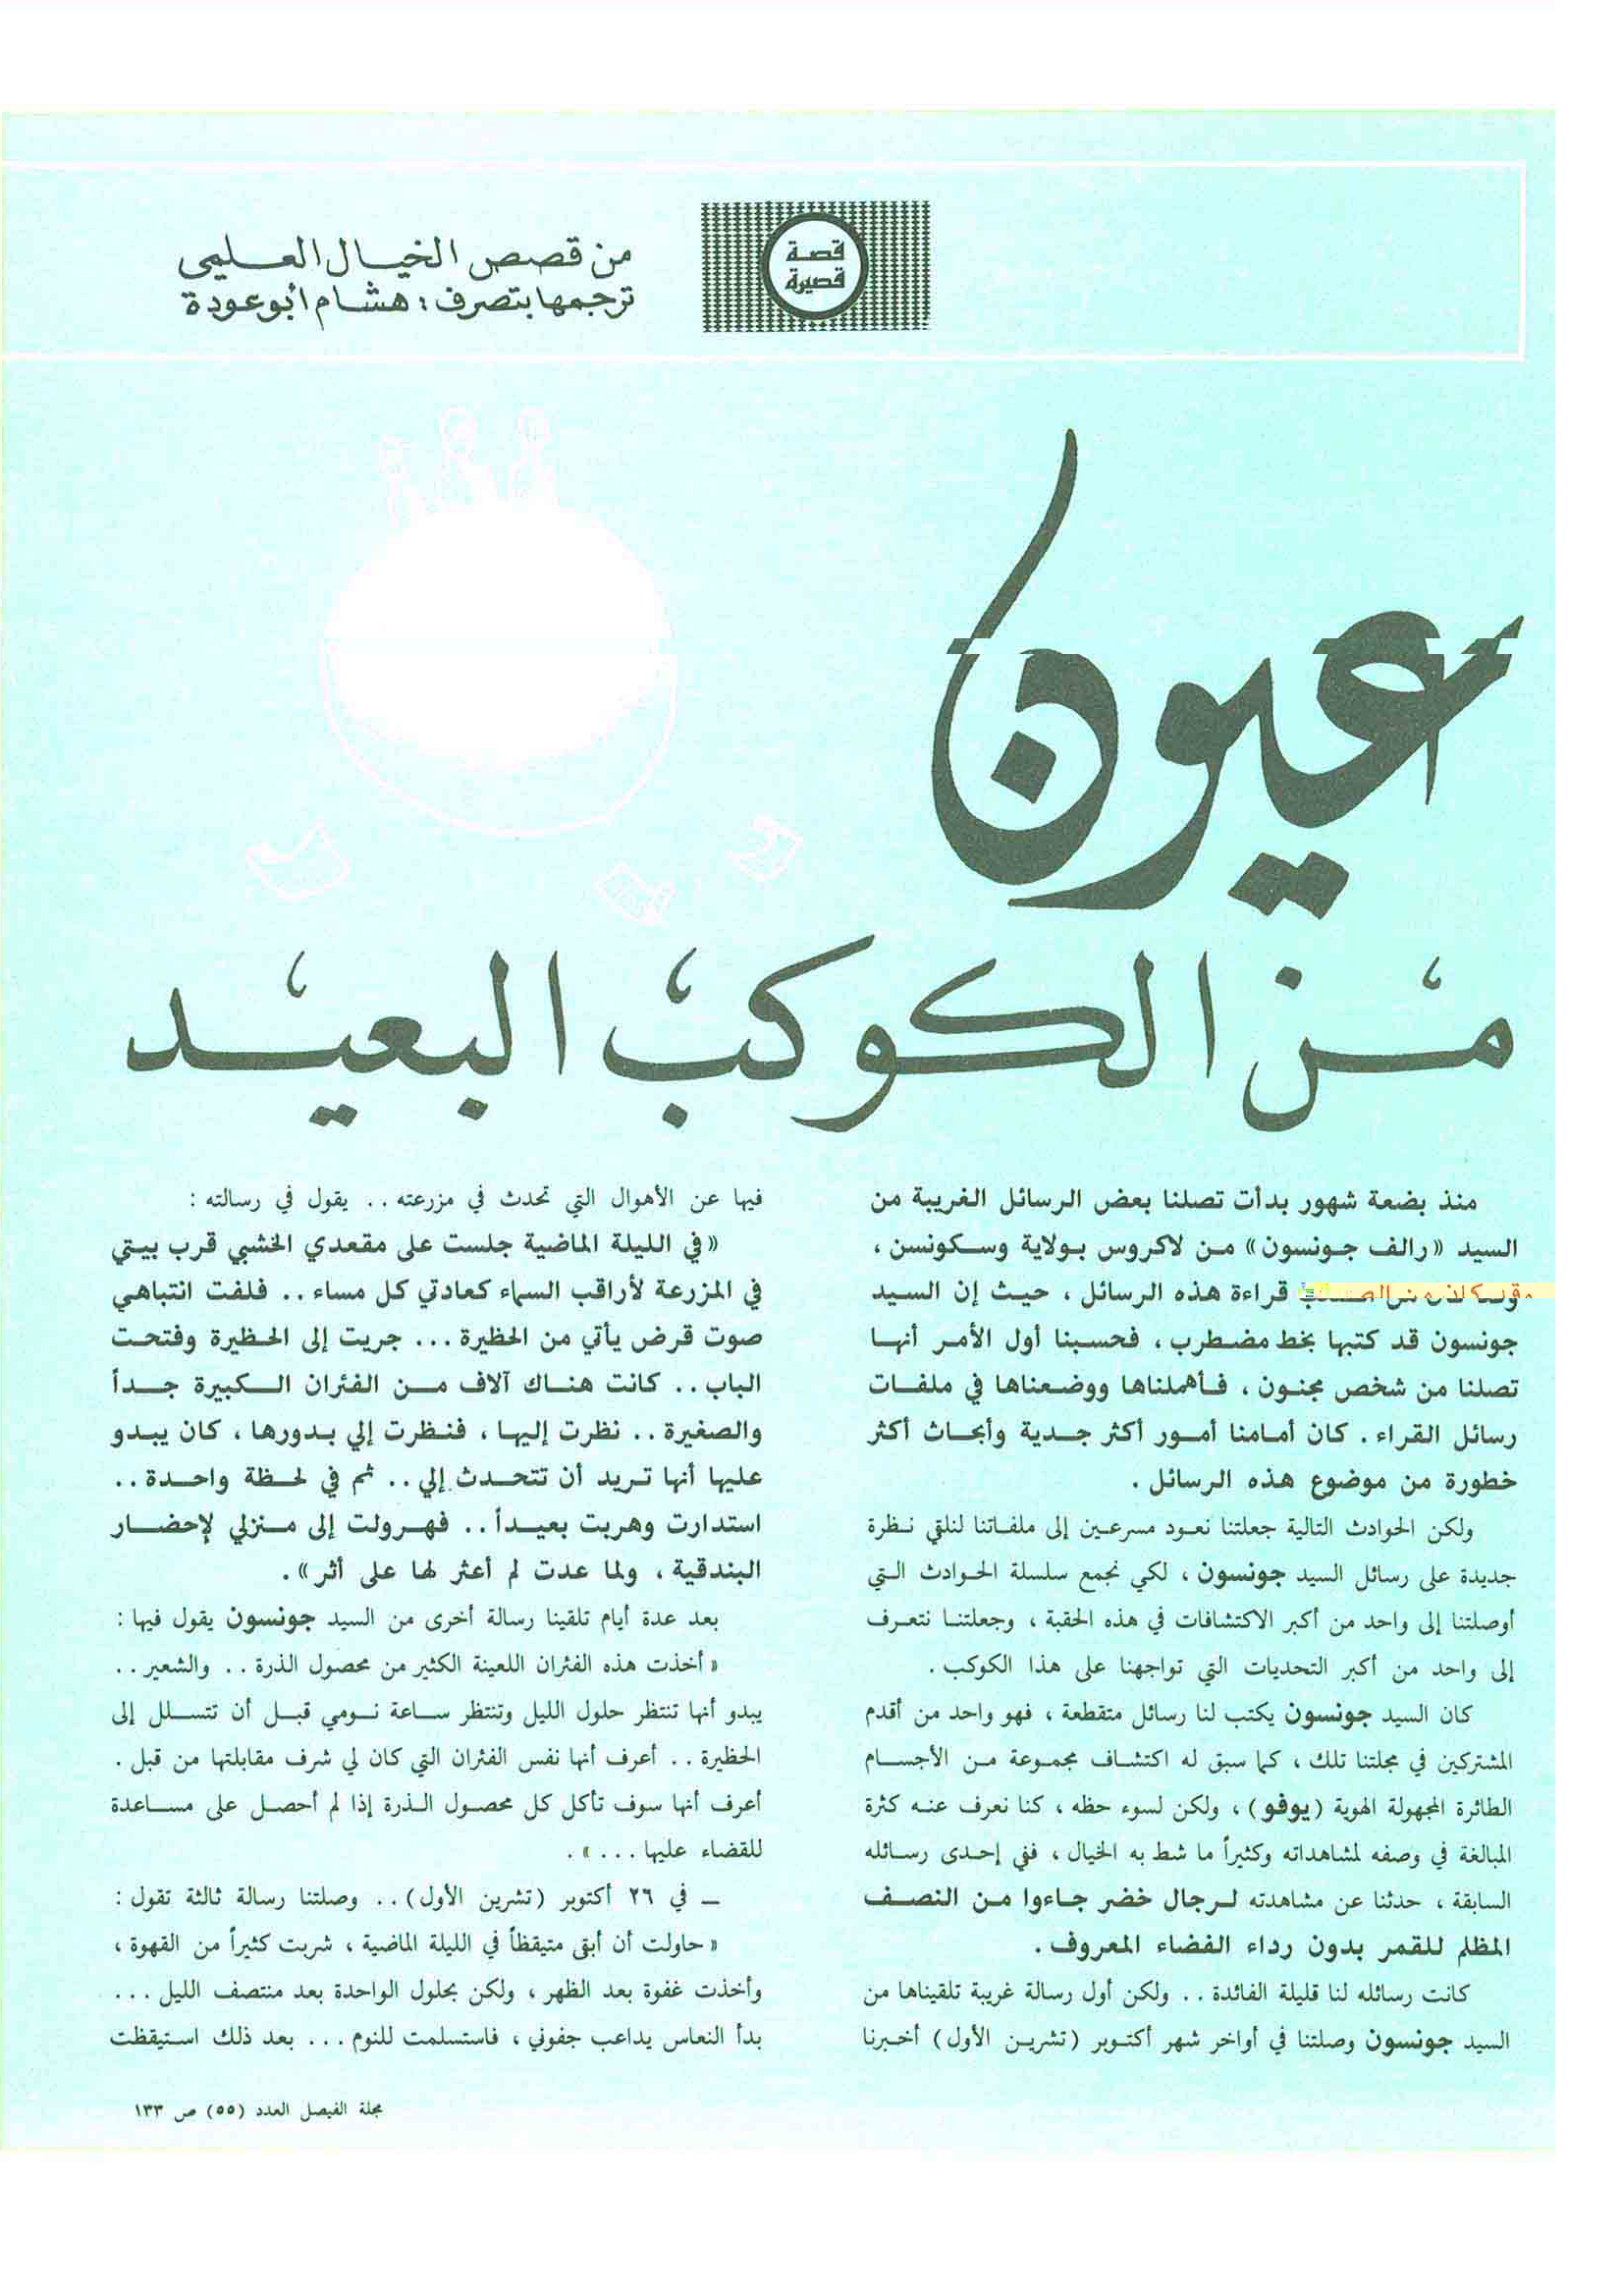 قصة
قصيرة
من قصص الخيال العلمي
ترجمها بتصرف : هشام أبوعودة
عيون
من الكوكب البعيد
منذ بضعة شهور بدأت تصلنا بعض الرسائل الغريبة من
السيد «رالف جونسون» من لاكروس بولاية وسكونسن ،
قراءة هذه الرسائل ، حيث إن السيد
جونسون قد كتبها بخط مضطرب ، فحسبنا أول الأمر أنها
تصلنا من شخص مجنون ، فأهملناها ووضعناها في ملفات
رسائل القراء . كان أمامنا أمور أكثر جدية وأبحاث أكثر
خطورة من موضوع هذه الرسائل .
ولكن الحوادث التالية جعلتنا نعود مسرعين إلى ملفاتنا لنلقي نظرة
جديدة على رسائل السيد جونسون ، لكي نجمع سلسلة الحوادث التي
أوصلتنا إلى واحد من أكبر الاكتشافات في هذه الحقبة ، وجعلتنا نتعرف
إلى واحد من أكبر التحديات التي تواجهنا على هذا الكوكب .
كان السيد جونسون يكتب لنا رسائل متقطعة ، فهو واحد من أقدم
المشتركين في مجلتنا تلك ، كما سبق له اكتشاف مجموعة من الأجسام
الطائرة المجهولة الهوية (يوفو) ، ولكن لسوء حظه ، كنا نعرف عنه كثرة
المبالغة في وصفه لمشاهداته وكثيراً ما شط به الخيال ، ففي إحدى رسائله
السابقة ، حدثنا عن مشاهدته لرجال خضر جاءوا من النصف
المظلم للقمر بدون رداء الفضاء المعروف .
كانت رسائله لنا قليلة الفائدة .. ولكن أول رسالة غريبة تلقيناها من
السيد جونسون وصلتنا في أواخر شهر أكتوبر (تشرين الأول) أخبرنا
فيها عن الأهوال التي تحدث في مزرعته .. يقول في رسالته :
«في الليلة الماضية جلست على مقعدي الخشبي قرب بيتي
في المزرعة لأراقب السماء كعادتي كل مساء .. فلفت انتباهي
صوت قرض يأتي من الحظيرة ... جريت إلى الحظيرة وفتحت
الباب .. كانت هناك آلاف من الفئران الكبيرة جداً
والصغيرة .. نظرت إليها ، فنظرت إلي بدورها ، كان يبدو
عليها أنها تريد أن تتحدث إلي .. ثم في لحظة واحدة ..
استدارت وهربت بعيداً .. فهرولت إلى منزلي لإحضار
البندقية ، ولما عدت لم أعثر لها على أثر» .
بعد عدة أيام تلقينا رسالة أخرى من السيد جونسون يقول فيها :
«أخذت هذه الفئران اللعينة الكثير من محصول الذرة .. والشعير ..
يبدو أنها تنتظر حلول الليل وتنتظر ساعة نومي قبل أن تتسلل إلى
الحظيرة .. أعرف أنها نفس الفئران التي كان لي شرف مقابلتها من قبل .
أعرف أنها سوف تأكل كل محصول الذرة إذا لم أحصل على مساعدة
للقضاء عليها ... » .
ــ في ٢٦ أكتوبر (تشرين الأول) .. وصلتنا رسالة ثالثة تقول :
«حاولت أن أبقى متيقظاً في الليلة الماضية ، شربت كثيراً من القهوة ،
وأخذت غفوة بعد الظهر ، ولكن بحلول الواحدة بعد منتصف الليل ...
بدأ النعاس يداعب جفوني ، فاستسلمت للنوم ... بعد ذلك استيقظت
مجلة الفيصل العدد (٥٥) ص ١٣٣